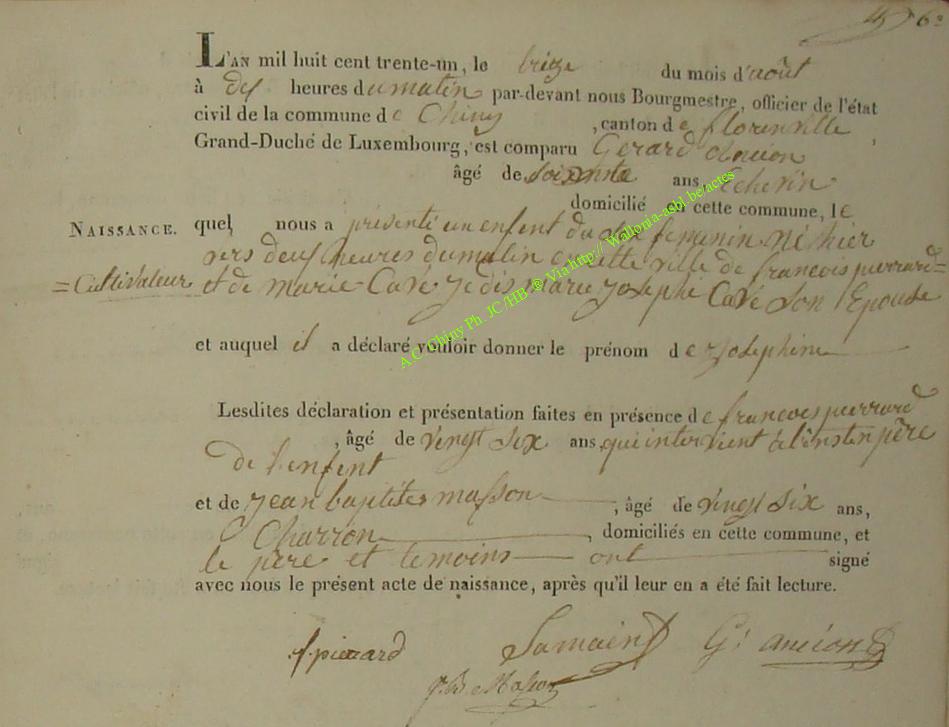 6
L'AN mil huit cent trente-un, le treize du mois d'août
à dix heures du matin par-devant nous Bourgmestre, officier de l'état
civil de la commune de Chiny, canton de florenville
Grand-Duché de Luxembourg, est comparu Gérard ancion
âgé de soixante ans, Echevin
domicilié en cette commune, le
NAISSANCE.
quel, nous a présenté un enfant du sexe feminin né hier
vers deux heures du matin en cette ville de françois pierrard =
= Cultivateur et de Marie Cavé je dis marie josephe Cavé son Epouse
et auquel il a déclaré vouloir donner le prénom de josephine
Lesdites déclaration et présentation faites en présence de françois pierrard
, âgé de vingt six ans, qui intervient à l'instar père
de l'enfant
et de jean baptiste masson, âgé de vingt six ans,
Charron, domiciliés en cette commune, et
le père et temoins ont signé
avec nous le présent acte de naissance, après qu'il leur en a été fait lecture.
f. pierrard Lamain G. ancion
j. B. Masson
A.C. Chiny Ph. JC /HB ® Via http:// Wallonia-asbl.be/actes